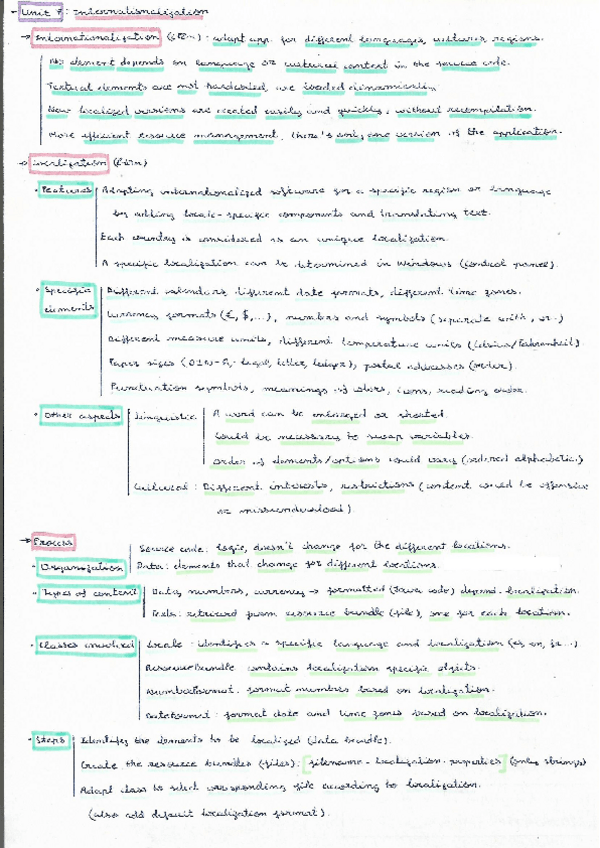 - Unit 7: Internationalization
→ Internationalization (i18n): adapt app. for different languages, cultures regions.
No element depends on language or cultural context in the source code.
Textual elements are not hardcoded, are loaded dinamically.
New localized versions are created easily and quickly, without recompilation.
More efficient resource management, there's only one version of the application.
→ Localization (l10n)
· Features Adapting internationalized software for a specific region or language
by adding locale-specific components and translating text.
Each country is considered as an unique localization.
A specific localization can be determined in Windows (control panel).
· Specific elements Different calendars, different date formats, different time zones.
Currency formats (€, $, ...), numbers and symbols (separate with , or .)
Different measure units, different temperature units (Celsius/Fahrenheit)
Paper sizes (legal, letter, ledger), postal addresses (order).
Punctuation symbols, meanings of colors, icons, reading order.
· Other aspects Linguistic A word can be enlarged or shorted.
Could be necessary to swap variables.
Order of elements/options could vary (ordered alphabetic.)
Cultural: Different interests, restrictions (content could be offensive
or misunderstood).
→ Process
· Organization Source code: logic, doesn't change for the different locations.
Data: elements that change for different locations.
· Types of content Data, numbers, currency → formatted (Java code) depend. localization.
Texts: retrieved from resource bundle (file), one for each location.
· Classes involved Locale: identifies a specific language and localization (es, en, fr...)
ResourceBundle contains localization specific objects.
NumberFormat: format numbers based on localization.
DateFormat: format date and time zones based on localization.
· Steps Identify the elements to be localized (data bundle).
Create the resource bundles (files): [filename - localization.properties] (only strings)
Adapt class to select corresponding file according to localization.
(also add default localization format).